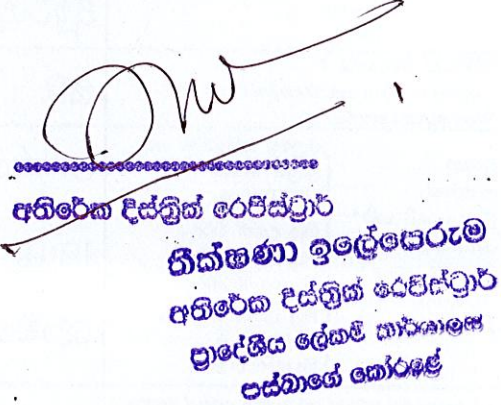 අතිරේක දිස්ත්‍රික් රෙජිස්ට්‍රාර්
තීක්ෂණා ඉලේපෙරුම
අතිරේක දිස්ත්‍රික් රෙජිස්ට්‍රාර්
ප්‍රාදේශීය ලේකම් කාර්යාලය
පස්බාගේ කෝරළේ